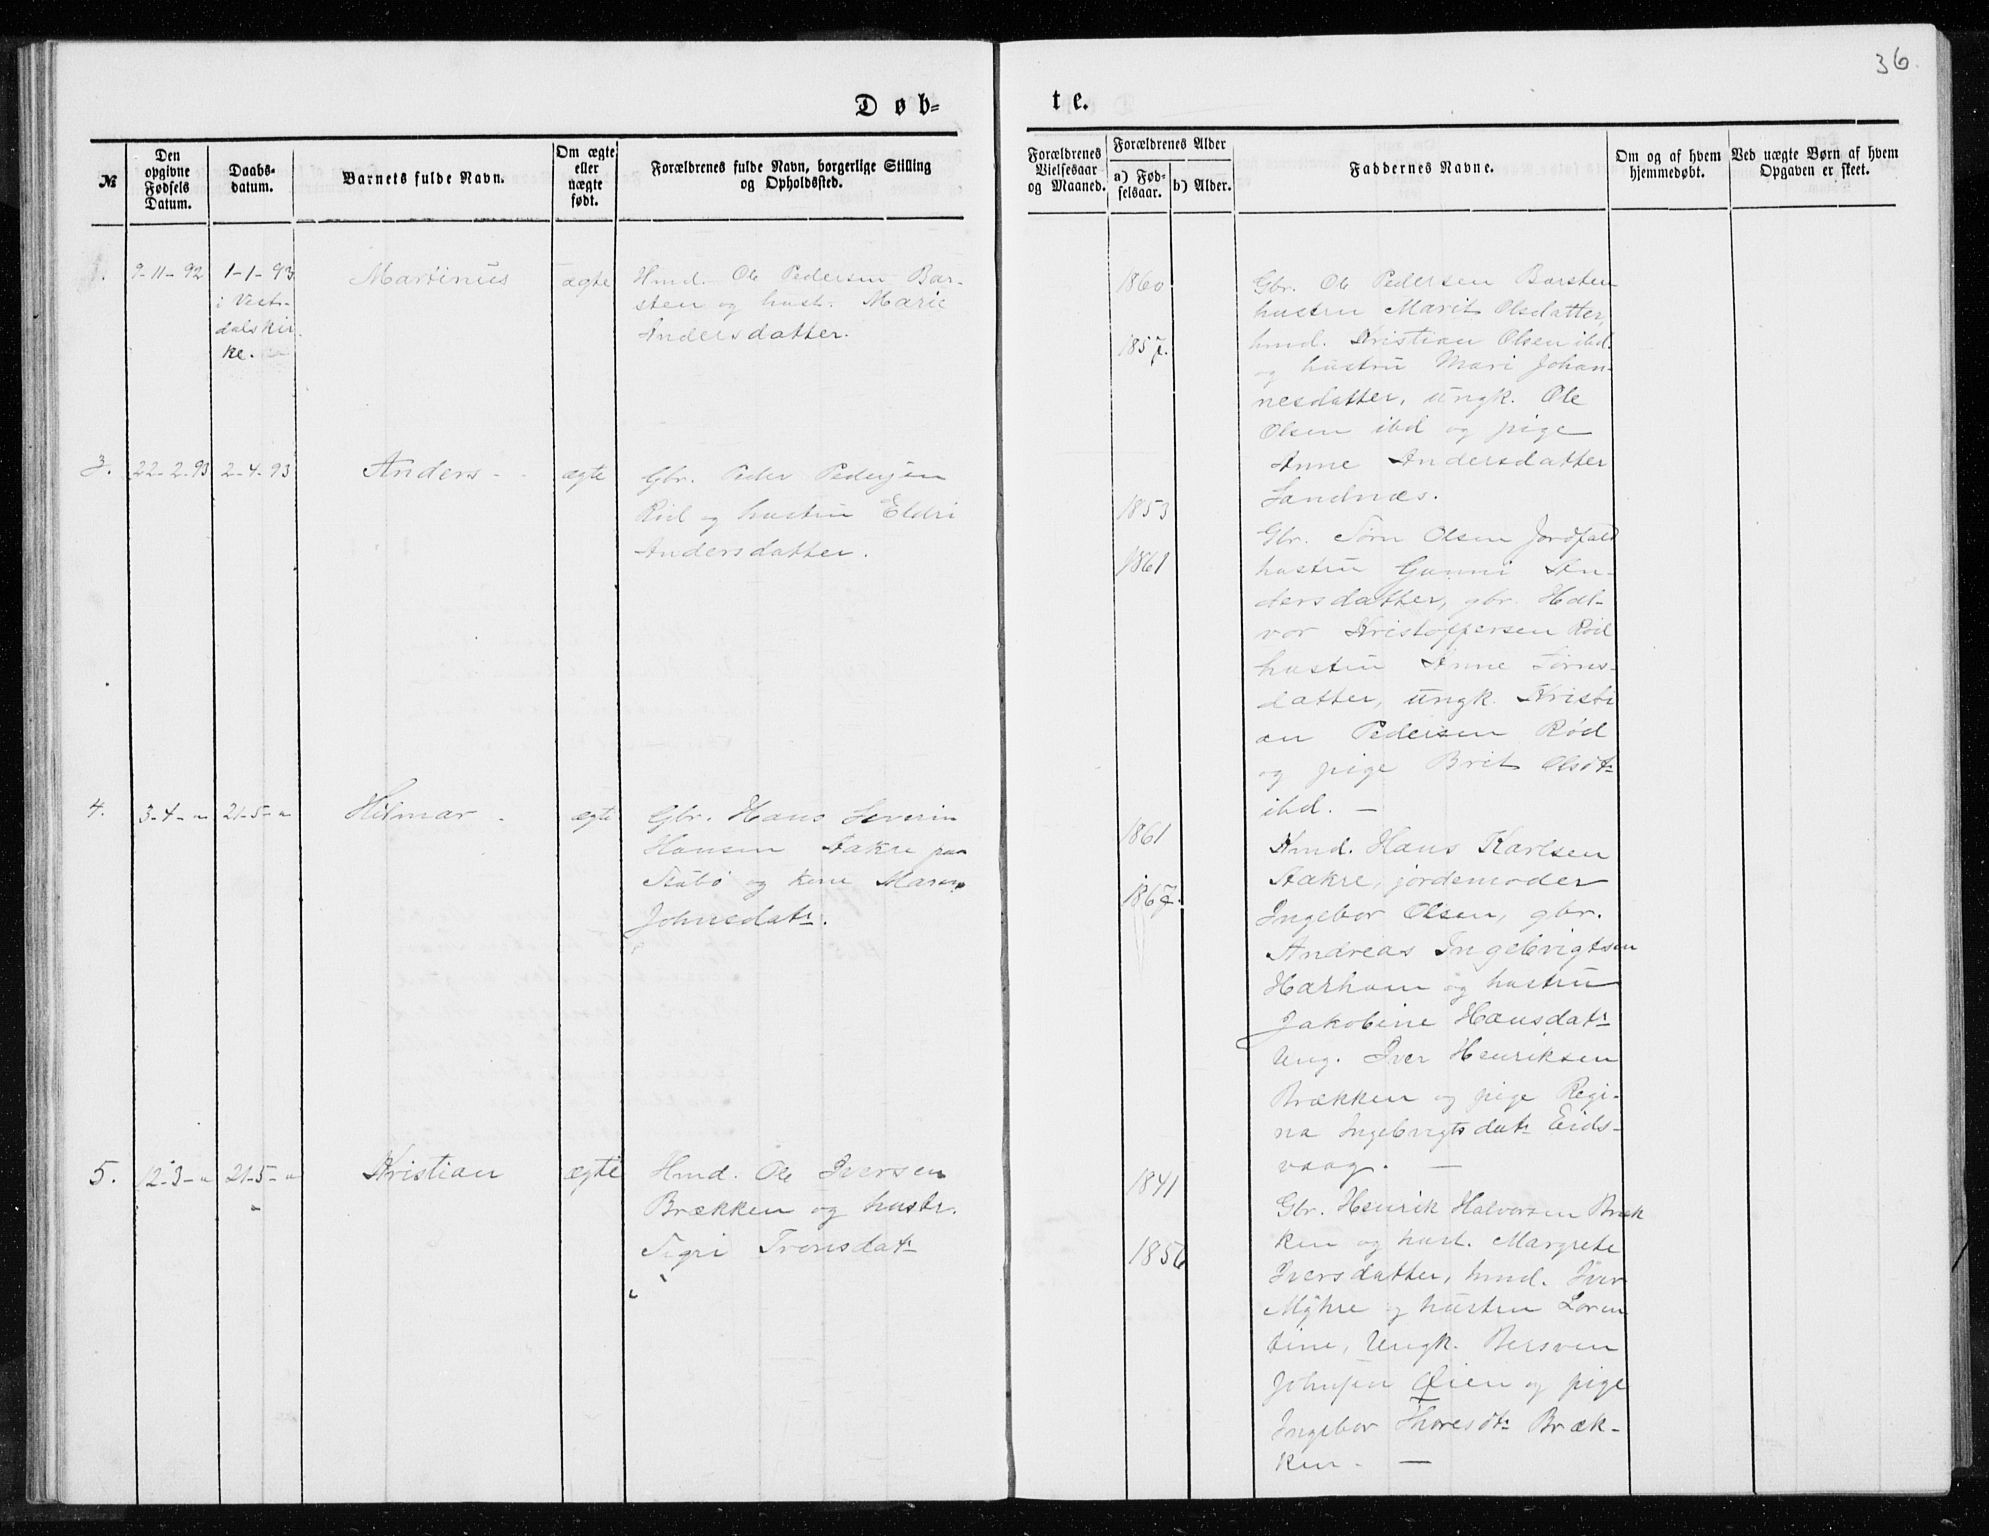 36.
Døb-
te.
№
Den
opgivne
Fødsels
Datum.
Daabs-
datum.
Barnets fulde Navn.
Om ægte
eller
uægte
født.
Forældrenes fulde Navn, borgerlige Stilling
og Opholdssted.
Forældrenes
Vielsesaar
og Maaned.
Forældrenes Alder
a) Fød-
selsaar.
b) Alder.
Faddernes Navne.
Om og af hvem
hjemmedøbt.
Ved uægte Børn af hvem
Opgaven er skeet.
1.
9-11-92
1-1-93
i Vest-
dals kir-
ke.
Martinus
ægte
Hmd. Ole Pedersen Bar-
sten og hust. Marie
Andersdatter.
1860
1857.
Gbr. Ole Pedersen Barsten
hustru Marit Olsdatter,
hmd. Kristian Olsen ibd.
og hustru Mari Johan-
nesdatter, ungk. Ole
Olsen ibd og pige
Anne Andersdatter
Sandnæs.
3.
22-2-93
2-4-93
Anders -
ægte
Gbr. Peder Pedersen
Rød og hustru Eldri
Andersdatter.
1853
1861
Gbr. Søren Olsen Jordfald
hustru Gunni An-
dersdatter, gbr. Hal-
vor Kristoffersen Rød
hustru Anne Sørens-
datter, ungk. Kristi
an Pedersen Rød
og pige Brit Olsdt.
ibd. —
4.
3-4-"
21-5-"
Hilmar -
ægte
Gbr. Hans Severin
Hansen Aakre paa
Stubø og kone Maren
Johnsdatr.
1861
1867.
Hmd. Hans Karlsen
Aakre, jordemoder
Ingebor Olsen, gbr.
Andreas Ingebrigtsen
Harham og hustru
Jakobine Hansdatr.
Ung. Iver Henriksen
Brækken og pige Regi-
na Ingebrigtsdatr. Eids-
vaag. —
5.
12-3-"
21-5-"
Kristian
ægte
Hmd. Ole Iversen
Brækken og hustr.
Sigri Tronsdatr.
1841
1856
Gbr. Henrik Halvorsen Bræk
ken og hust. Margrete
Iversdatter, hmd. Iver
Myhre og hustru Loren
tine, Ungk. Bersven
Johnsen Øien og pige
Ingebor Thoresdt. Bræk-
ken. —